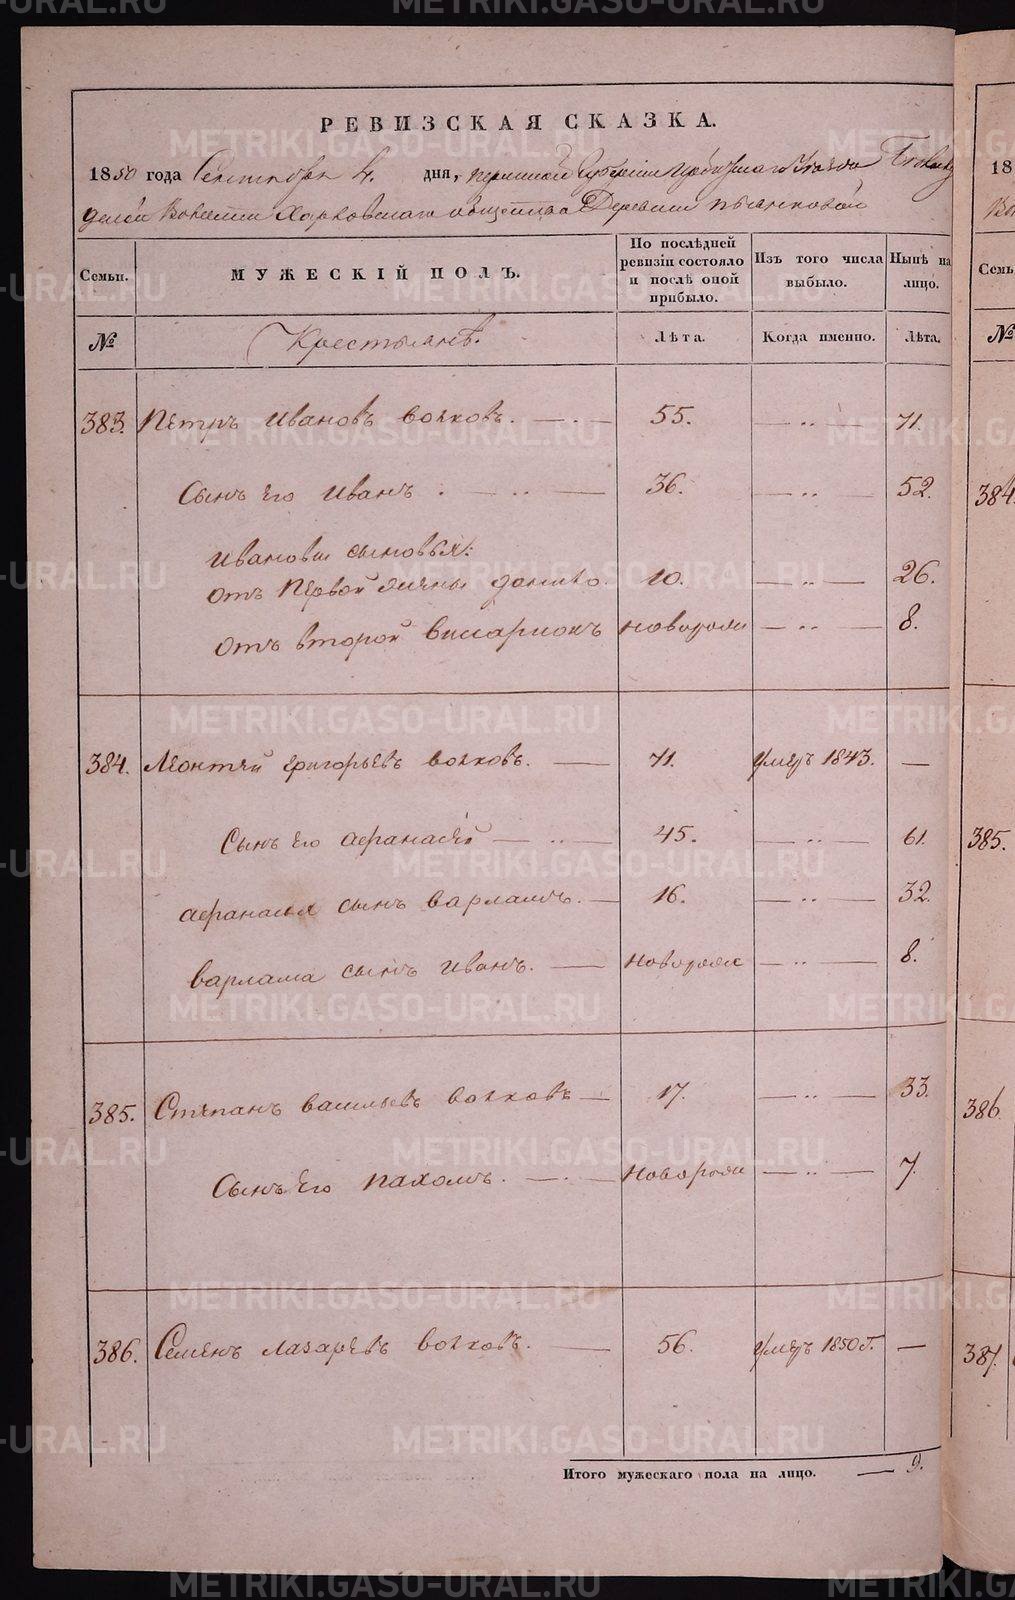 METRIKI.GASO-URAL.RU
РЕВИЗСКАЯ СКАЗКА.
1850 года Сентября 4. дня, Пермской Губернии Ирбитскаго Уезда
Волости Харловскаго общества Деревни
Семьи. МУЖЕСКІЙ ПОЛЪ. По послѣдней ревизіи состояло и послѣ оной прибыло. Изъ того числа выбыло. Нынѣ на лицо.
№ Крестьянъ. Лѣта. Когда именно. Лѣта.
383. Петръ Ивановъ волковъ. 55. — „ — 71.
Сынъ его Иванъ. 36. — „ — 52.
Ивановы сыновья:
отъ первой жены данило. 10. — „ — 26.
отъ второй висарионъ новорожд — „ — 8.
384. Леонтей григорьевъ волковъ. 71. умеръ 1843. —
Сынъ его афранасей 45. — „ — 61.
афранасья сынъ варламъ. 16. — „ — 32.
варлама сынъ иванъ. новорожд — „ — 8.
385. Степанъ васильевъ волковъ 17. — „ — 33.
Сынъ его пахомъ. новорожд — „ — 7.
386. Семенъ лазаревъ волковъ. 56. умеръ 1850 г. —
Итого мужескаго пола на лицо. — 9.
18
Семь
№
384.
385.
386
387